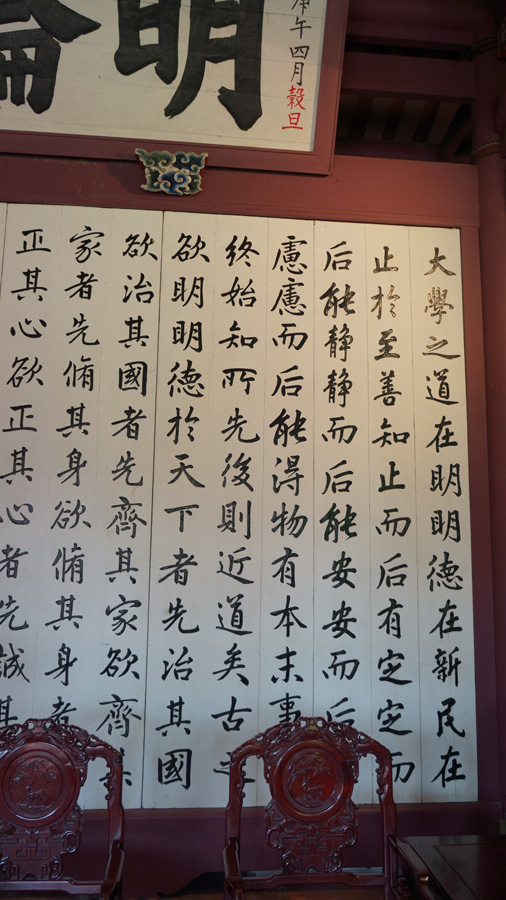 明倫
庚午四月穀旦
大學之道在明明德在新民在
止於至善知止而后有定定而
后能静静而后能安安而后
慮慮而后能得物有本末事
終始知所先後則近道矣古
欲明明德於天下者先治其國
欲治其國者先齊其家欲齊其
家者先脩其身欲脩其身者
正其心欲正其心者先誠其